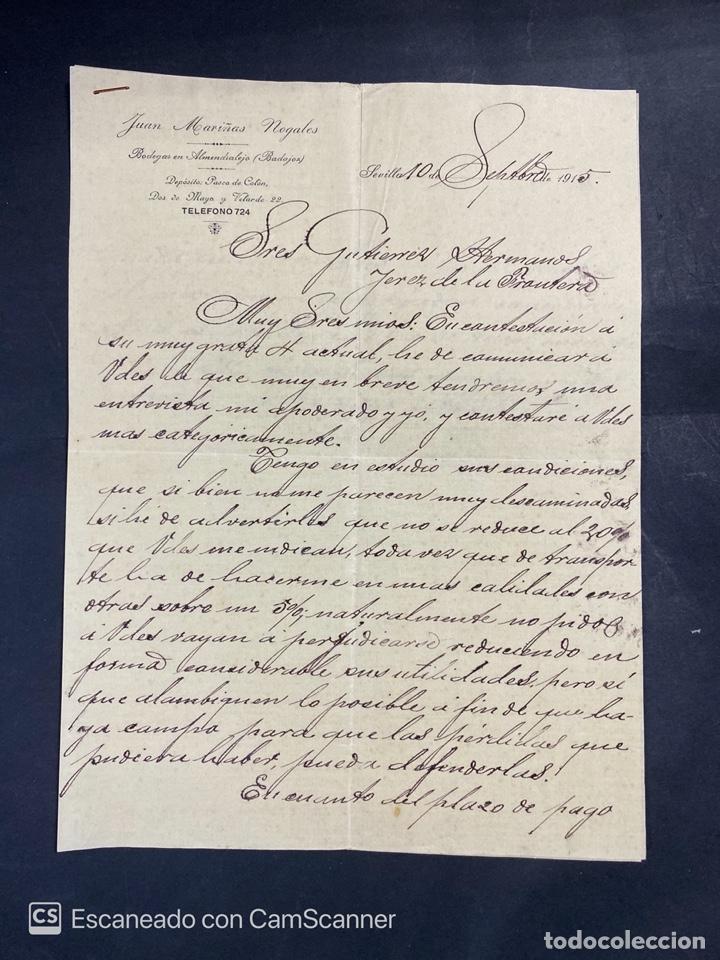 Juan Mariñas Nogales
Bodegas en Almendralejo (Badajoz)
Depósito: Paseo de Colón,
Dos de Mayo y Velarde 22
TELEFONO 724
Sevilla 10 de Septbre de 1915.
Sres Gutierrez Hermanos
Jerez de la Frontera
Muy Sres mios: En contestación á
su muy grata 4 actual, he de comunicar á
Vdes que muy en breve tendremos una
entrevista mi apoderado y yó, y contestaré á Vdes
mas categóricamente.
Tengo en estudio sus condiciones,
que si bien no me parecen muy descaminadas,
si hé de advertirles que no se reduce al 20%
que Vdes me indican, toda vez que de transpor-
te ha de hacerme en unas calidades con
otras sobre un 5%; naturalmente no pido
á Vdes vayan á perjudicarse reduciendo en
forma considerable sus utilidades, pero sí
que alambiquen lo posible á fin de que ha-
ya campo para que las perdidas que
pudiera haber, pueda defenderlas.
En cuanto del plazo de pago
CS Escaneado con CamScanner
todocoleccion